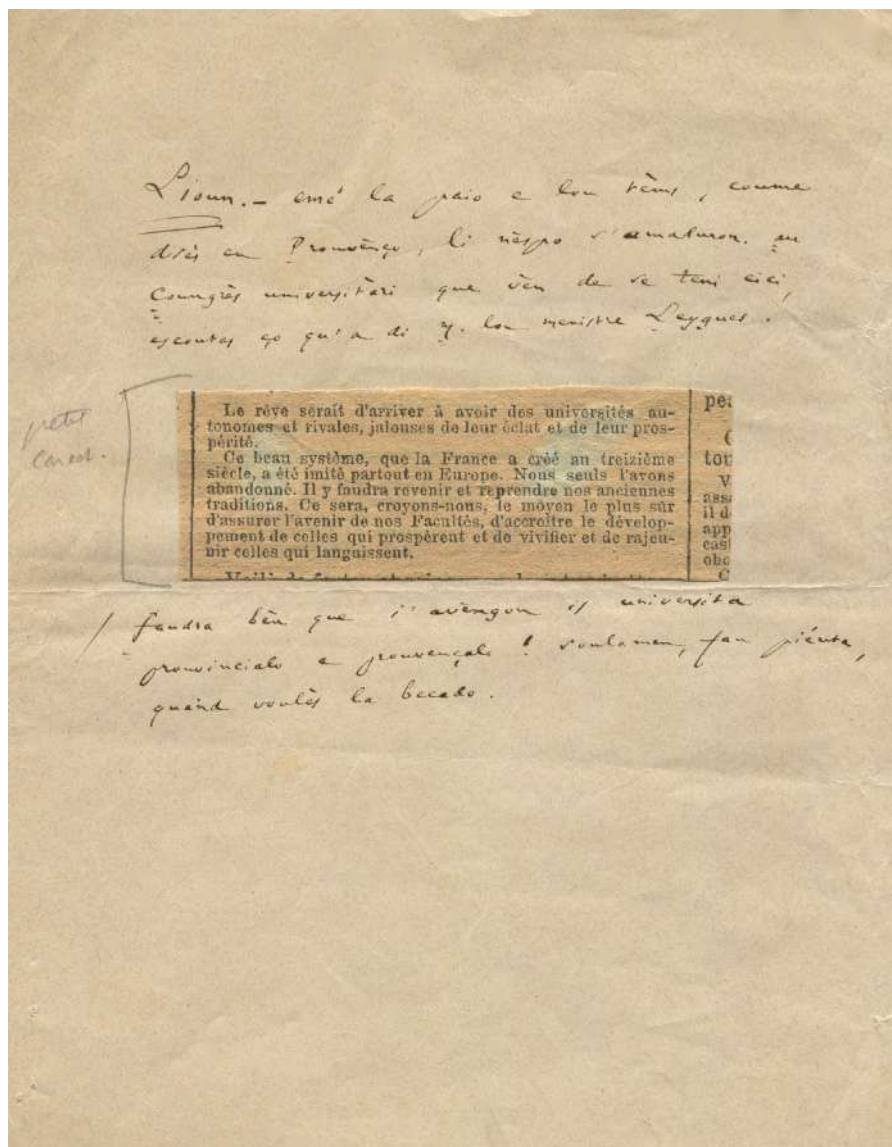 Lioun. – emé la paio e lou tèms, coume
disès en Prouvènço, li nèspo s'amaduron. au
Coungrès universitàri que vèn de se teni eici,
escoutas ço qu'a di M. lou menistre Leygues.
petit
caract.
Le rêve serait d'arriver à avoir des universités au-
tonomes et rivales, jalouses de leur éclat et de leur pros-
périté.
Ce beau système, que la France a créé au treizième
siècle, a été imité partout en Europe. Nous seuls l'avons
abandonné. Il y faudra revenir et reprendre nos anciennes
traditions. Ce sera, croyons-nous, le moyen le plus sûr
d'assurer l'avenir de nos Facultés, d'accroître le dévelop-
pement de celles qui prospèrent et de vivifier et de rajeu-
nir celles qui languissent.
/ faudra bèn que i' avengon is universita
prouvincialo e prouvençalo ! soulamen, fau piéuta,
quand voulès la becado.